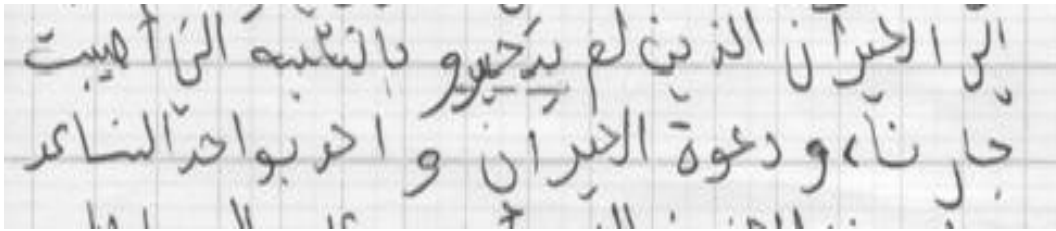 الى الجيران الذين لم يتدخيرو بالنكبه التى أصيبت
جارنا، ودعوة الجيران واحد بواحد النساعد